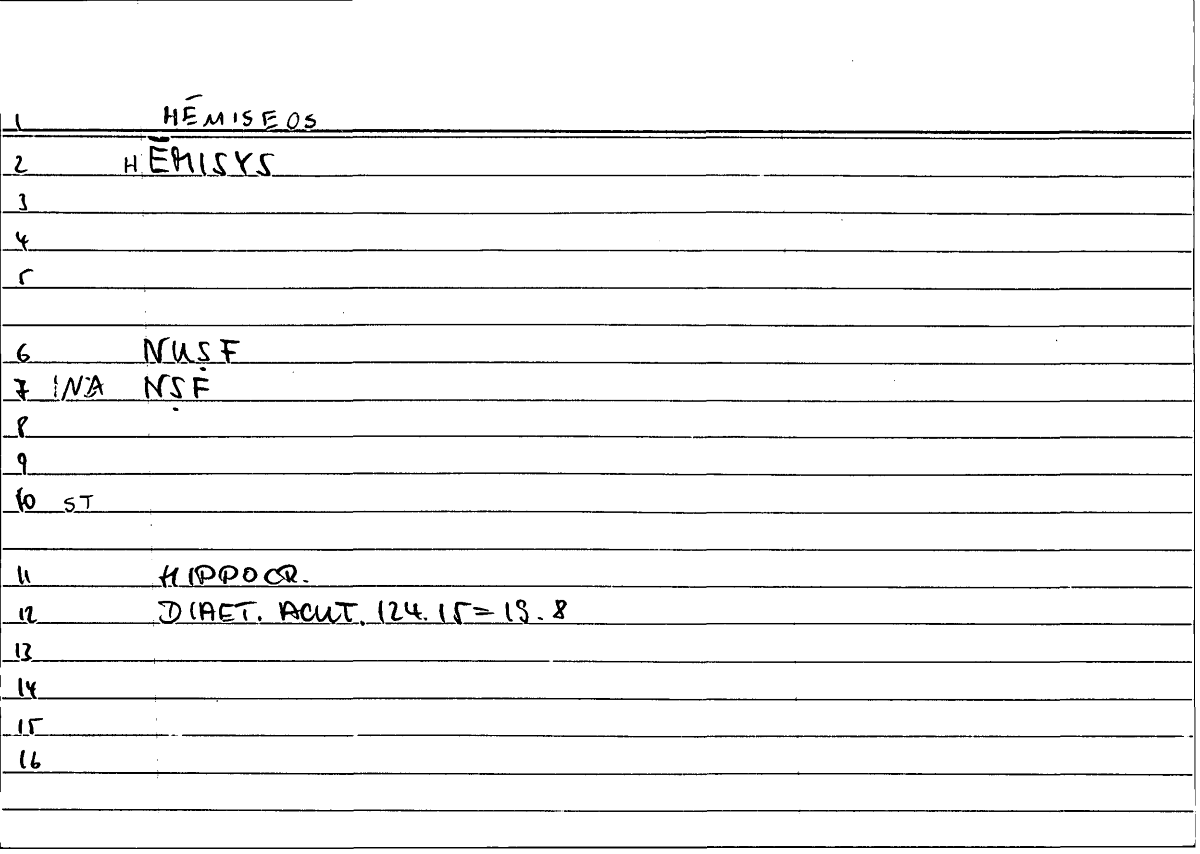 1 HĒMISEOS
2 HĒMISYS
3
4
5
6 NUṢF
7 INA NṢF
8
9
10 ST
11 HIPPOCR.
12 DIAET. ACUT. 124.15=19.8
13
14
15
16